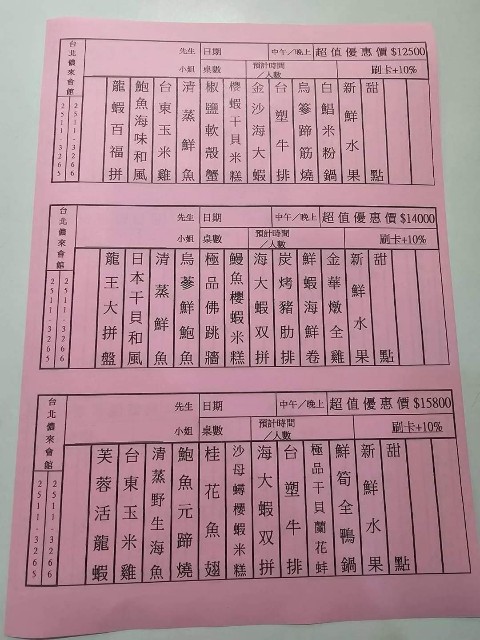 台北儂來會館
2511-3265
2511-3266
先生
小姐
日期
桌數
中午/晚上
預計時間/人數
超值優惠價$12500
刷卡+10%
龍蝦百福拼
鮑魚海味和風
台東玉米雞
清蒸鮮魚
椒鹽軟殼蟹
櫻蝦干貝米糕
金沙海大蝦
台塑牛排
烏蔘蹄筋燒
白鯧米粉鍋
新鮮水果
甜點
台北儂來會館
2511-3265
2511-3266
先生
小姐
日期
桌數
中午/晚上
預計時間/人數
超值優惠價$14000
刷卡+10%
龍王大拼盤
日本干貝和風
清蒸鮮魚
烏蔘鮮鮑魚
極品佛跳牆
鰻魚櫻蝦米糕
海大蝦双拼
炭烤豬肋排
鮮蝦海鮮卷
金華燉全雞
新鮮水果
甜點
台北儂來會館
2511-3265
2511-3266
先生
小姐
日期
桌數
中午/晚上
預計時間/人數
超值優惠價$15800
刷卡+10%
芙蓉活龍蝦
台東玉米雞
清蒸野生海魚
鮑魚元蹄燒
桂花魚翅
沙母蟳櫻蝦米糕
海大蝦双拼
台塑牛排
極品干貝蘭花蚌
鮮筍全鴨鍋
新鮮水果
甜點